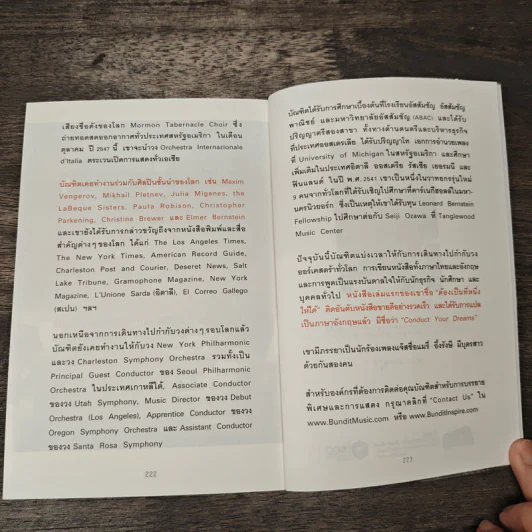 เสียงชื่อดังของโลก Mormon Tabernacle Choir ซึ่ง
ถ่ายทอดสดออกอากาศทั่วประเทศสหรัฐอเมริกา ในเดือน
ตุลาคม ปี 2547 นี้ เขาจะนำวง Orchestra Internazionale
d'Italia ตระเวนเปิดการแสดงทั่วเอเชีย
บัณฑิตเคยทำงานร่วมกับศิลปินชั้นนำของโลก เช่น Maxim
Vengerov, Mikhail Pletnev, Julia Migenes, the
LaBeque Sisters, Paula Robison, Christopher
Parkening, Christine Brewer และ Elmer Bernstein
และเขายังได้รับการกล่าวขวัญถึงจากหนังสือพิมพ์และสื่อ
สำคัญต่างๆของโลก ได้แก่ The Los Angeles Times,
The New York Times, American Record Guide,
Charleston Post and Courier, Deseret News, Salt
Lake Tribune, Gramophone Magazine, New York
Magazine, L'Unione Sarda (อิตาลี), El Correo Gallego
(สเปน) ฯลฯ
นอกเหนือจากการเดินทางไปกำกับวงต่างๆรอบโลกแล้ว
บัณฑิตยังเคยทำงานให้กับวง New York Philharmonic
และวง Charleston Symphony Orchestra รวมทั้งเป็น
Principal Guest Conductor ของ Seoul Philharmonic
Orchestra ในประเทศเกาหลีใต้, Associate Conductor
ของวง Utah Symphony, Music Director ของวง Debut
Orchestra (Los Angeles), Apprentice Conductor ของวง
Oregon Symphony Orchestra และ Assistant Conductor
ของวง Santa Rosa Symphony
222
บัณฑิตได้รับการศึกษาเบื้องต้นที่โรงเรียนอัสสัมชัญ อัสสัมชัญ
พาณิชย์ และมหาวิทยาลัยอัสสัมชัญ (ABAC) และได้รับ
ปริญญาตรีสองสาขา ทั้งทางด้านดนตรีและบริหารธุรกิจ
ที่ประเทศออสเตรเลีย ได้รับปริญญาโท เอกการอำนวยเพลง
ที่ University of Michigan ในสหรัฐอเมริกา และศึกษา
เพิ่มเติมในประเทศอิตาลี ออสเตรีย รัสเซีย เยอรมนี และ
ฟินแลนด์ ในปี พ.ศ. 2541 เขาเป็นหนึ่งในวาทยกรรุ่นใหม่
9 คนจากทั่วโลกที่ได้รับเชิญไปศึกษาที่คาร์เนกีฮอลล์ในมหา-
นครนิวยอร์ก ซึ่งเป็นเหตุให้เขาได้รับทุน Leonard Bernstein
Fellowship ไปศึกษาต่อกับ Seiji Ozawa ที่ Tanglewood
Music Center
ปัจจุบันนี้บัณฑิตแบ่งเวลาให้กับการเดินทางไปกำกับวง
ออร์เคสตร้าทั่วโลก การเขียนหนังสือทั้งภาษาไทยและอังกฤษ
และการพูดเป็นแรงบันดาลใจให้กับนักธุรกิจ นักศึกษา และ
บุคคลทั่วไป หนังสือเล่มแรกของเขาชื่อ "ต้องเป็นที่หนึ่ง
ให้ได้" ติดอันดับหนังสือขายดีอย่างรวดเร็ว และได้รับการแปล
เป็นภาษาอังกฤษแล้ว มีชื่อว่า "Conduct Your Dreams"
เขามีภรรยาเป็นนักร้องเพลงแจ๊สชื่อแมรี่ อึ๊งรังษี มีบุตรสาว
ด้วยกันสองคน
สำหรับองค์กรที่ต้องการติดต่อคุณบัณฑิตสำหรับการบรรยาย
พิเศษและการแสดง กรุณาคลิกที่ "Contact Us" ใน
www.BunditMusic.com หรือ www.BunditInspire.com
223